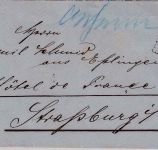 Herrn
Emil Schmid
aus Esslingen
Hôtel de France
Straßburg